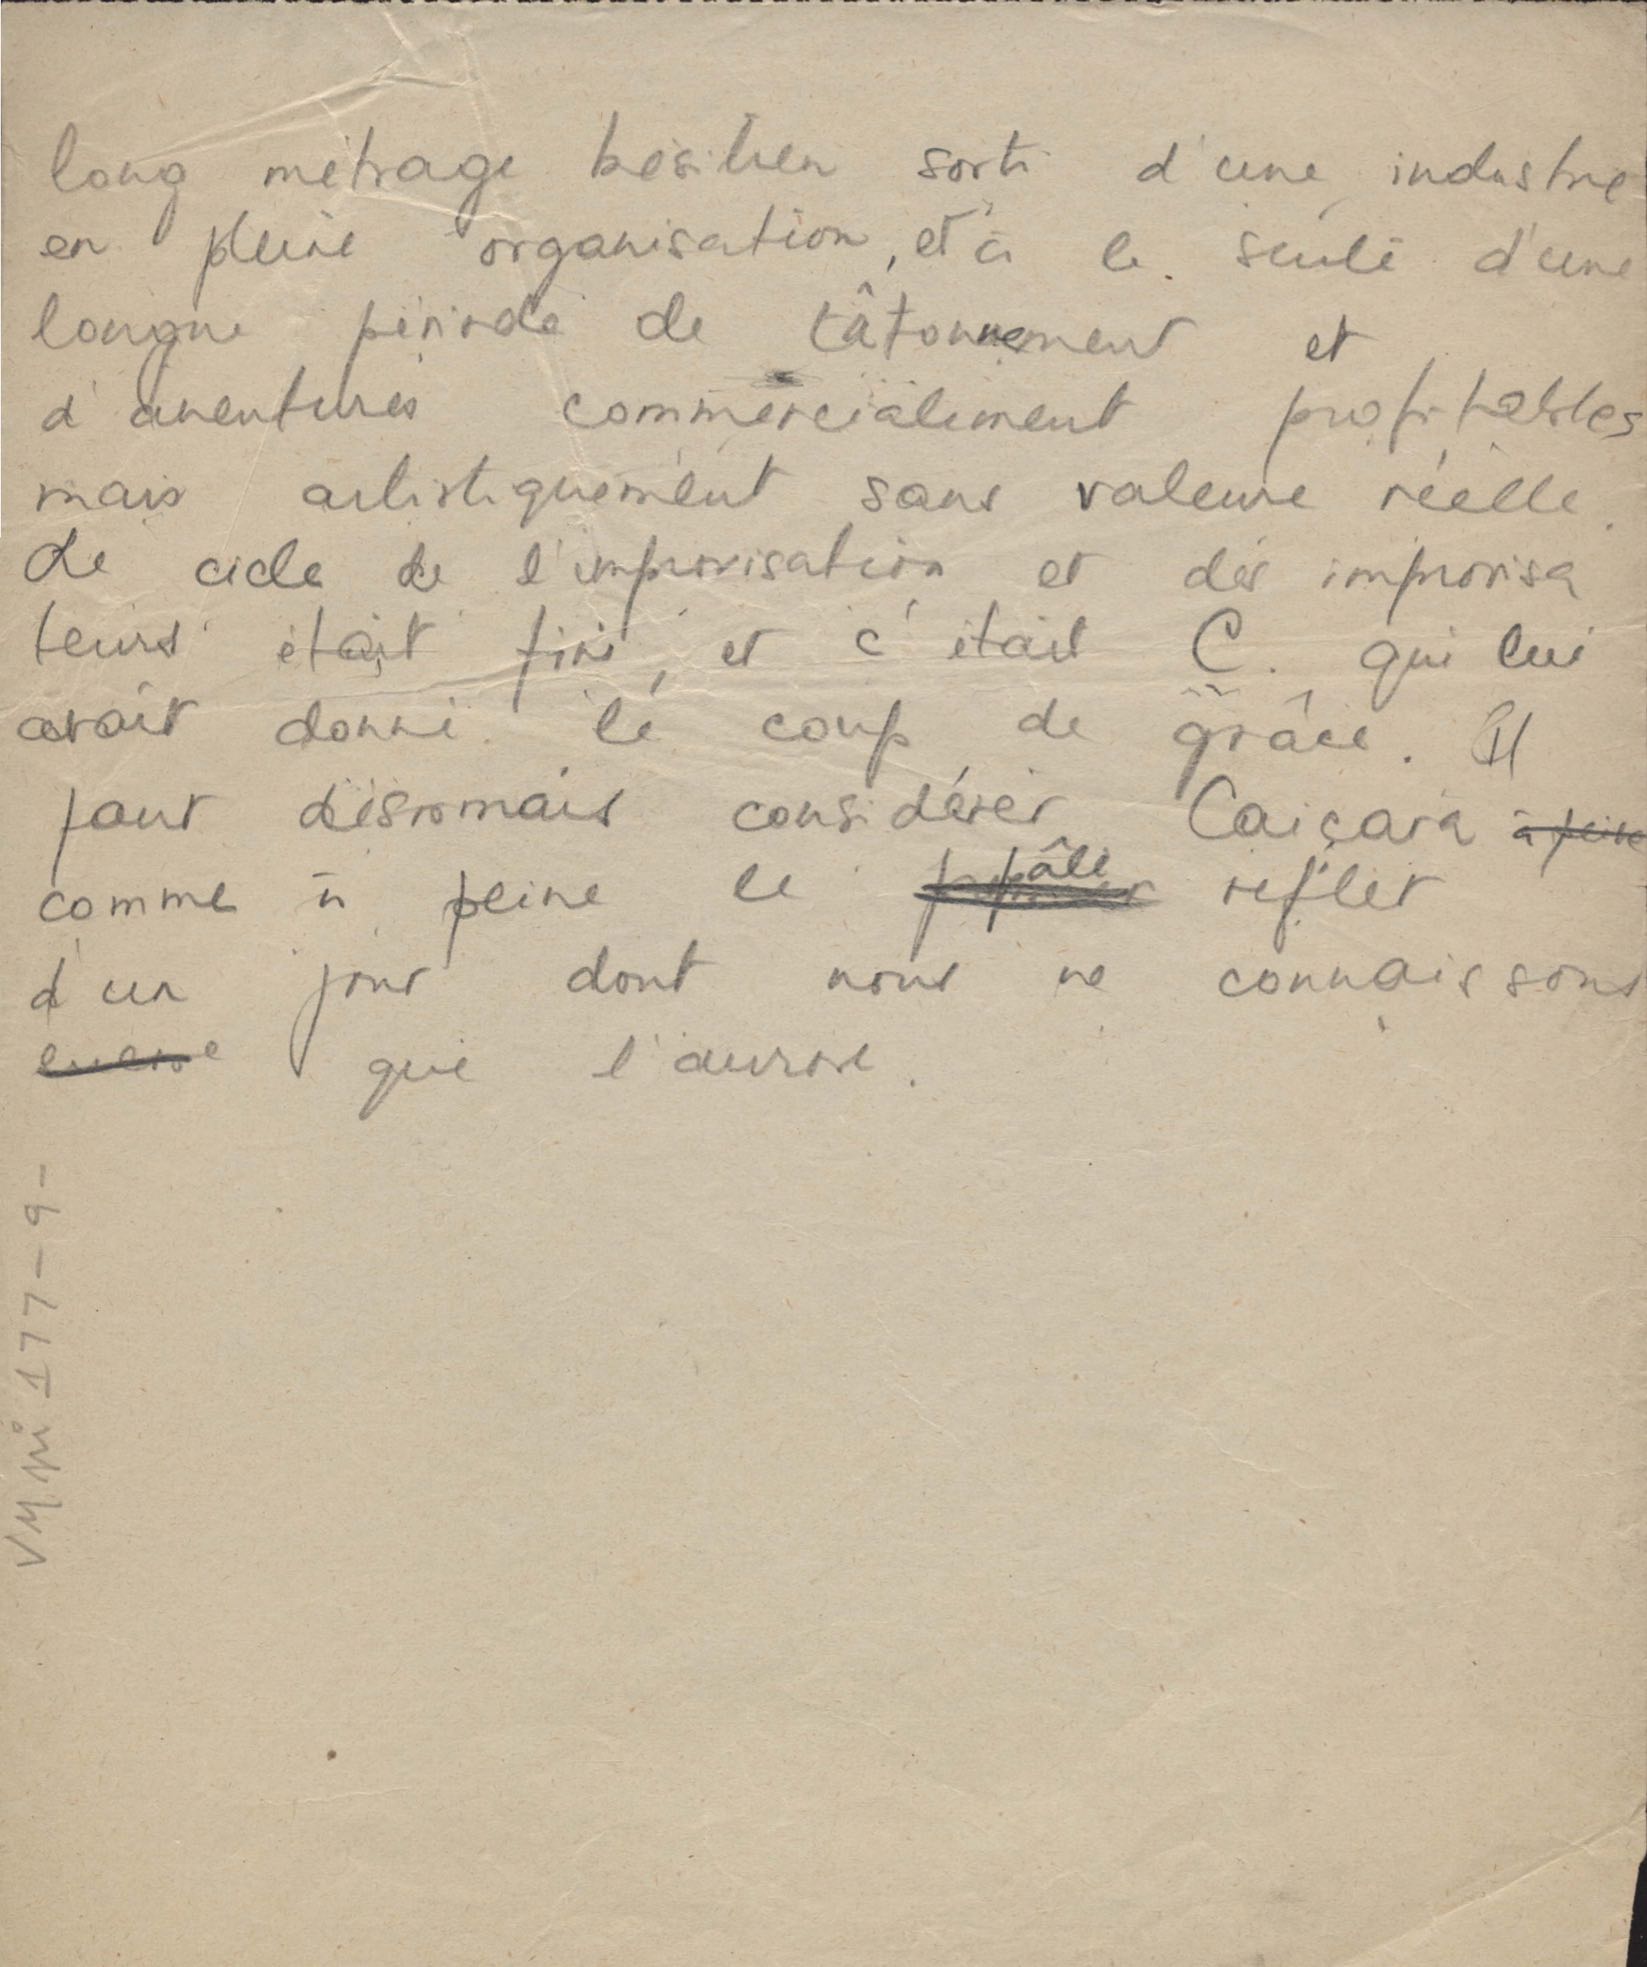 long métrage brésilien sorti d'une industrie
en pleine organisation, et à la suite d'une
longue période de tâtonnement et
d'aventures commercialement profitables
mais artistiquement sans valeure réelle.
Le cicle de l'improvisation et des improvisa
teurs était fini, et c'était C. qui lui
avait donné le coup de grâce. Il
faut désromais considérer Caiçara à peine
comme à peine le pâle reflet
d'un jour dont nous ne connaissons
encore que l'aurore.
VM pi 177-9-